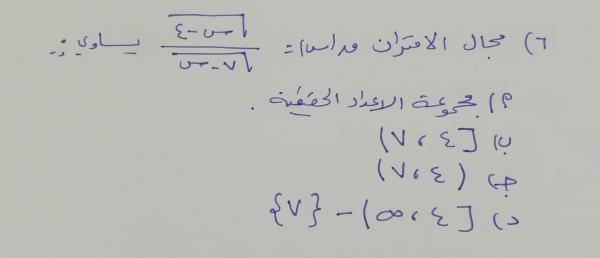 ٦) مجال الاقتران ق(س) = √(س-٤) / √(٧-س) يساوي :
أ) مجموعة الاعداد الحقيقية .
ب) [٤ ، ٧)
ج) (٤ ، ٧)
د) [٤ ، ∞) - {٧}